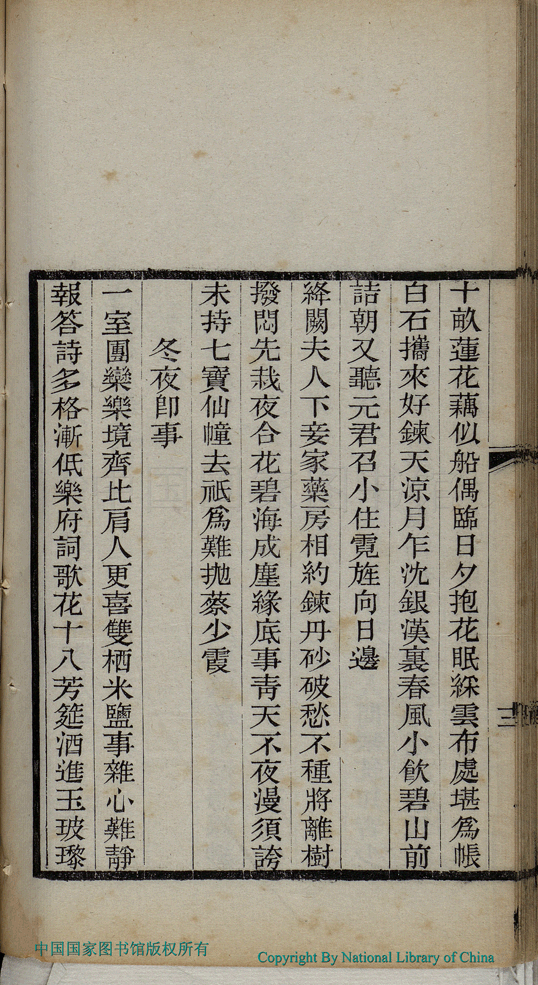 十畝蓮花藕似船偶臨日夕抱花眠綵雲布處堪爲帳
白石攜來好鍊天涼月乍沈銀漢裏春風小飲碧山前
詰朝又聽元君召小住霓旌向日邊
絳闕夫人下妾家藥房相約鍊丹砂破愁不種將離樹
撥悶先栽夜合花碧海成塵緣底事靑天不夜漫須誇
未持七寶仙幢去祇爲難抛蔡少霞
冬夜卽事
一室團欒樂境齊比肩人更喜雙栖米鹽事雜心難靜
報答詩多格漸低樂府詞歌花十八芳筵酒進玉玻瓈
三
中国国家图书馆版权所有
Copyright By National Library of China